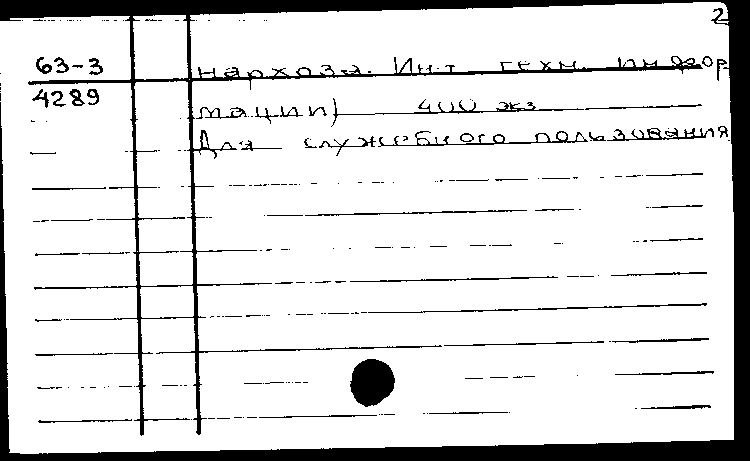 2
63-3 нархоза. Ин-т техн. инфор
4289 мации) 400 экз
Для служебного пользования